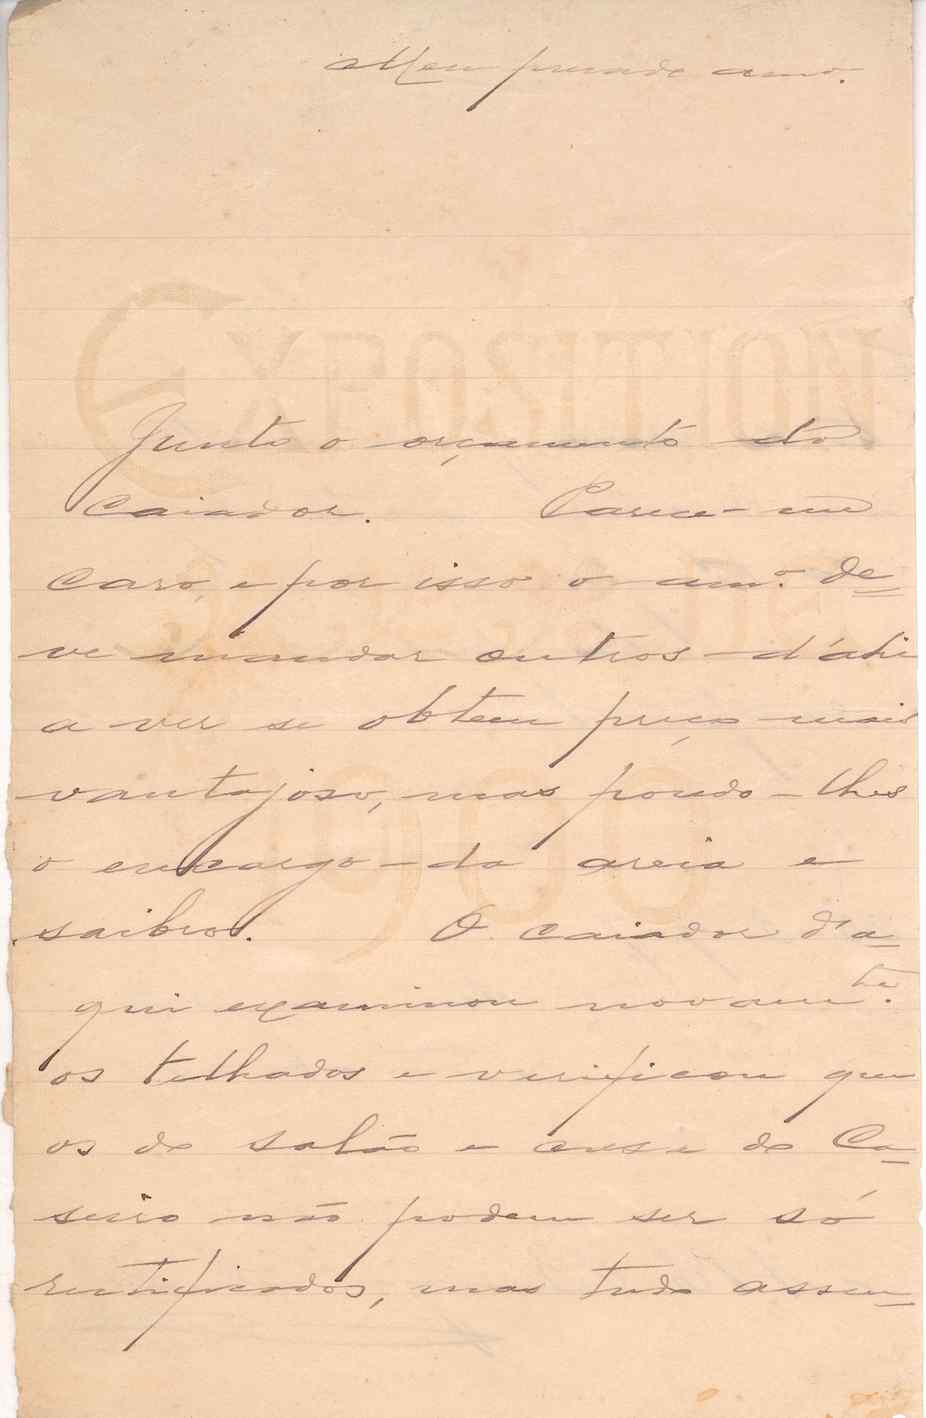 Meu presado amo.
EXPOSITION
Junto o orçamento do
Caiador. Parece-me
caro, e por isso o amo. de=
ve mandar outros d'ahi
a ver se obtem preço mais
vantajoso, mas pondo-lhes
o encargo da areia e
saibro. O caiador d'a-
qui examinou novamte.
os telhados e verificou que
os do salão e casa do Ca-
seiro não podem ser só
retificados, mas tudo assen-
1900